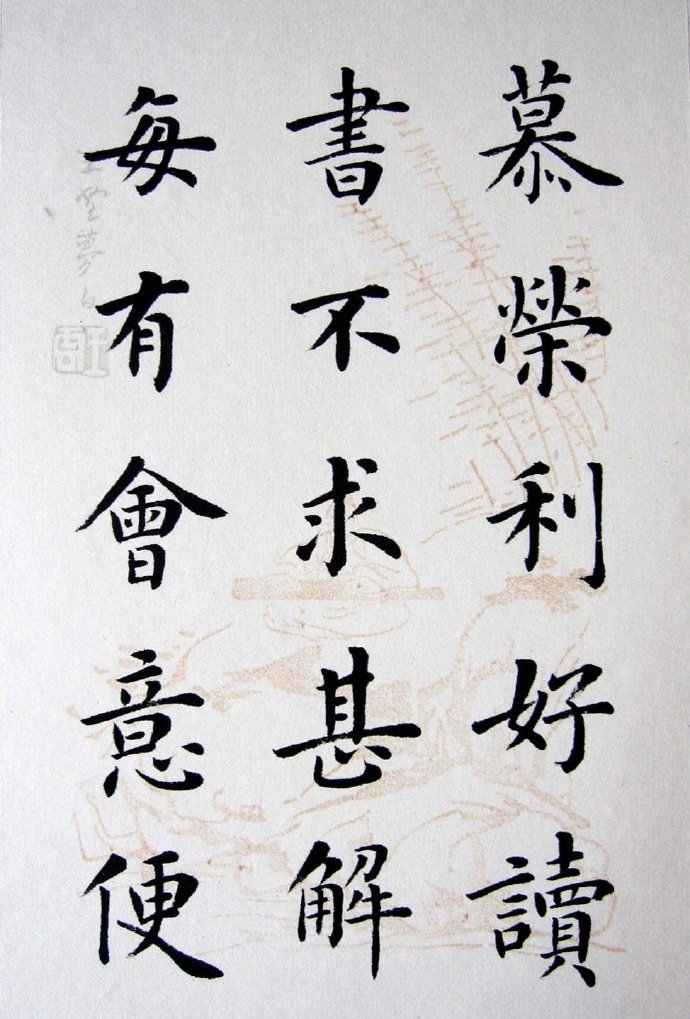 慕榮利好讀
書不求甚解
每有會意便